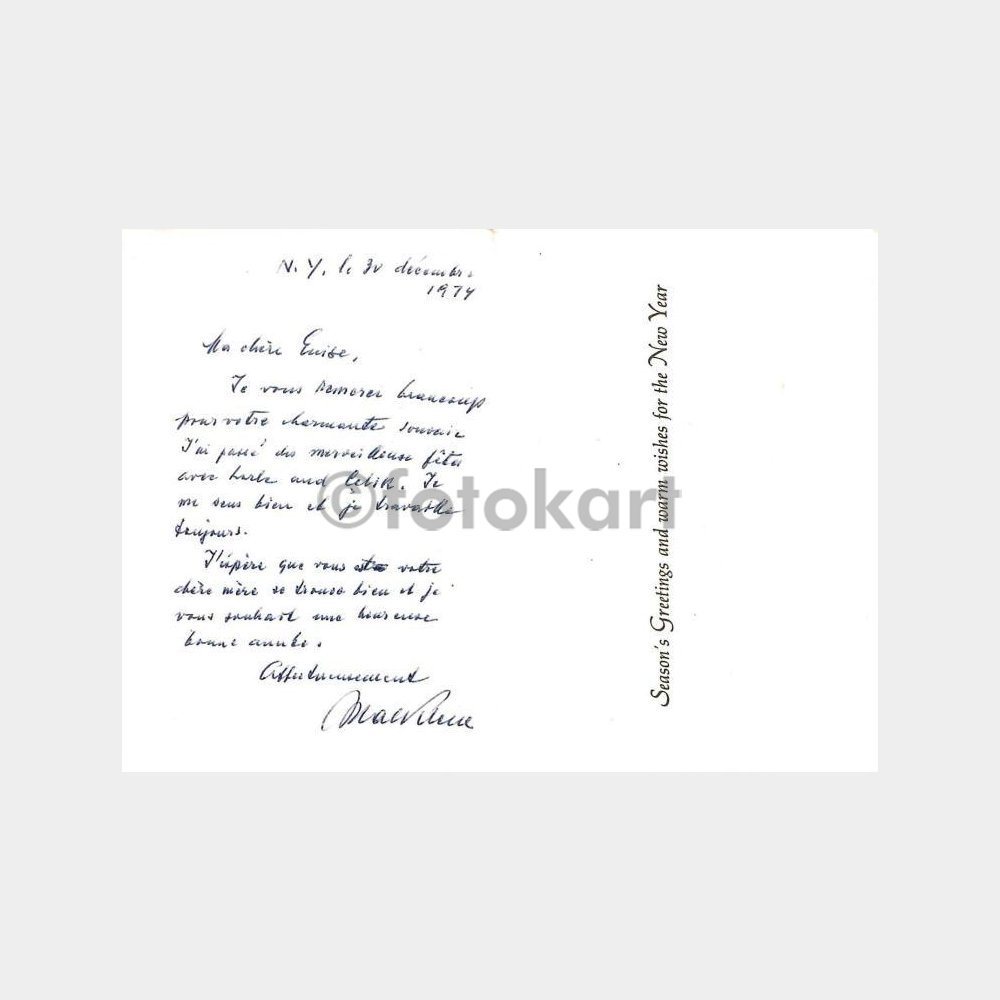 N.Y. le 30 décembre
1974
Ma chère Enise,
Je vous remercie beaucoup
pour votre charmante souvenir
J'ai passé des merveilleuse fêtes
avec and Çelik. Je
me sens bien et je travaille
toujours.
J'éspère que vous votre
chère mère se trouve bien et je
vous souhait une heureuse
bonne année.
Affectueusement
Season's Greetings and warm wishes for the New Year
©fotokart